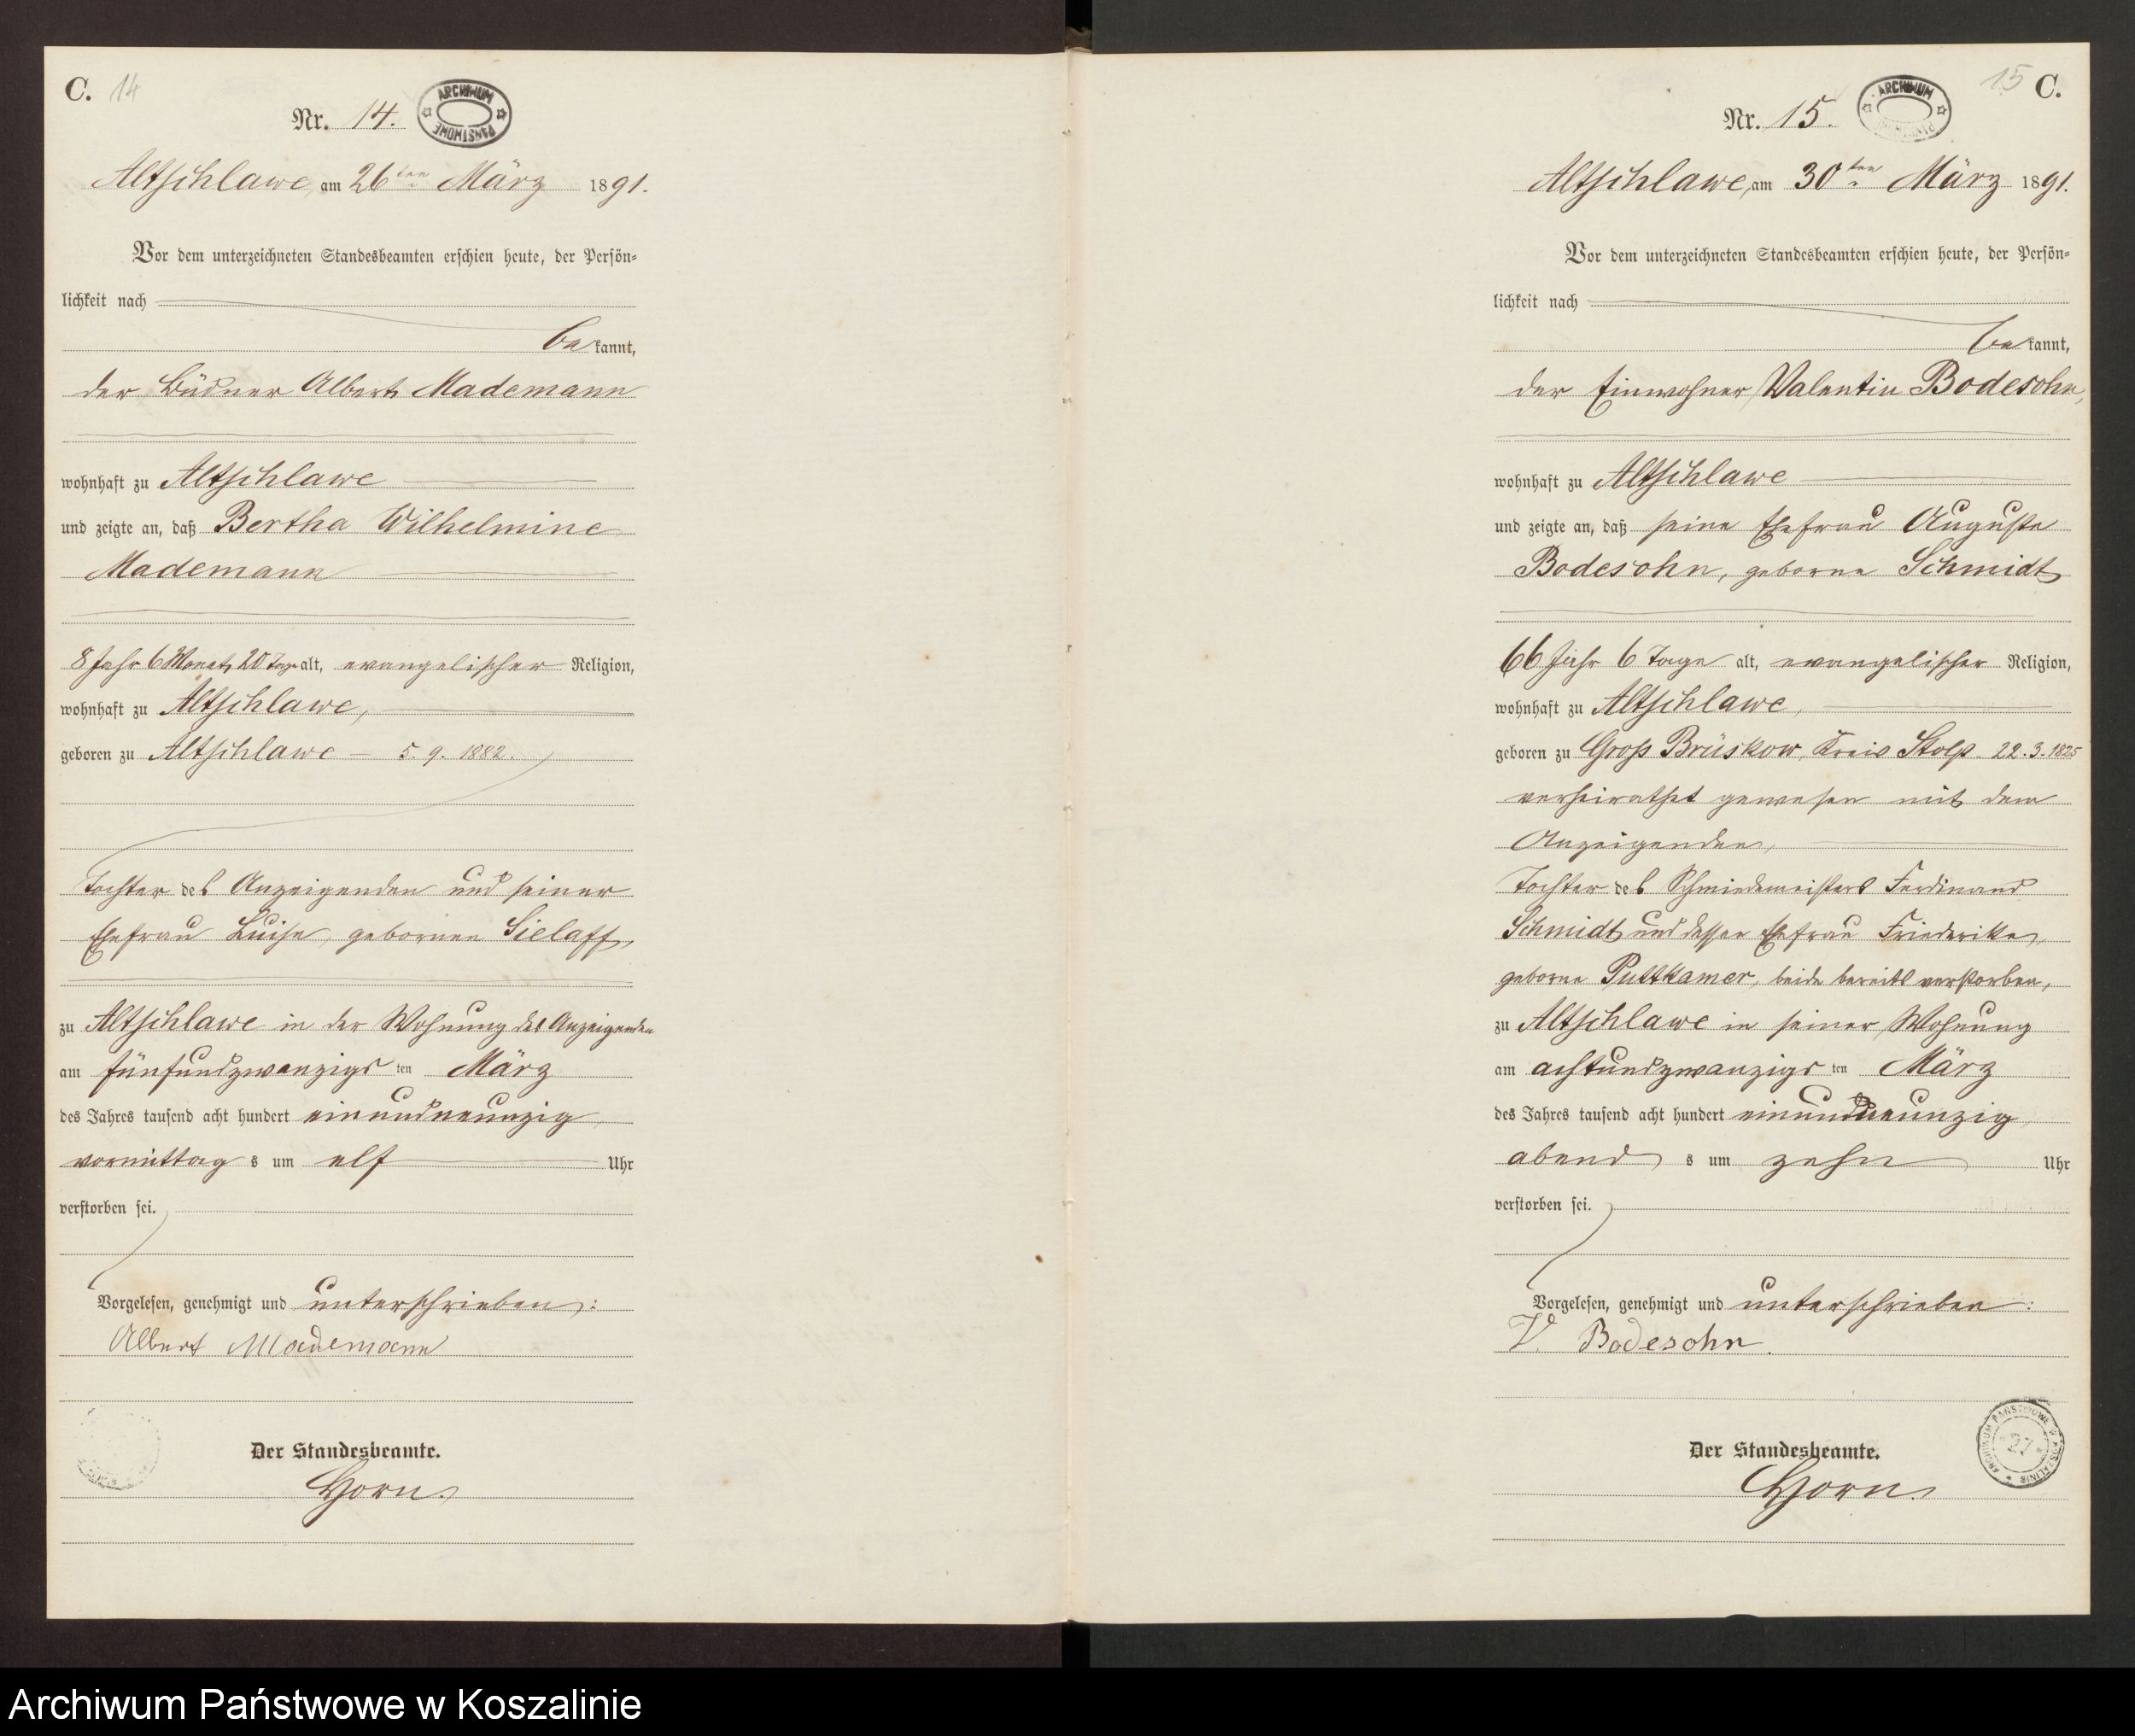 C. 14
Nr. 14.
ARCHIWUM PAŃSTWOWE
Altschlawe, am 26ten März 1891.
Vor dem unterzeichneten Standesbeamten erschien heute, der Persön-
lichkeit nach
be kannt,
der Büdner Albert Mademann
wohnhaft zu Altschlawe
und zeigte an, daß Bertha Wilhelmine
Mademann
8 Jahr 6 Monat, 20 Tage alt, evangelischer Religion,
wohnhaft zu Altschlawe,
geboren zu Altschlawe – 5. 9. 1882.
Tochter des Anzeigenden und seiner
Ehefrau Luise, gebornen Sielaff,
zu Altschlawe in der Wohnung des Anzeigenden
am fünfundzwanzigsten März
des Jahres tausend acht hundert einundneunzig,
vormittags um elf Uhr
verstorben sei.
Vorgelesen, genehmigt und unterschrieben:
Albert Mademann
Der Standesbeamte.
Horn.
15 C.
Nr. 15.
ARCHIWUM PAŃSTWOWE
Altschlawe, am 30ten März 1891.
Vor dem unterzeichneten Standesbeamten erschien heute, der Persön-
lichkeit nach
be kannt,
der Einwohner Valentin Bodesohn,
wohnhaft zu Altschlawe
und zeigte an, daß seine Ehefrau Auguste
Bodesohn, geborne Schmidt
66 Jahr 6 Tage alt, evangelischer Religion,
wohnhaft zu Altschlawe,
geboren zu Groß Brüskow, Kreis Stolp. 22. 3. 1825
verheirathet gewesen mit dem
Anzeigenden,
Tochter des Schmiedemeisters Ferdinand
Schmidt und dessen Ehefrau Friederike,
geborne Puttkamer, beide bereits verstorben,
zu Altschlawe in seiner Wohnung
am achtundzwanzigsten März
des Jahres tausend acht hundert einundneunzig,
abends um zehn Uhr
verstorben sei.
Vorgelesen, genehmigt und unterschrieben:
V. Bodesohn.
ARCHIWUM PAŃSTWOWE W KOSZALINIE
27
Der Standesbeamte.
Horn.
Archiwum Państwowe w Koszalinie